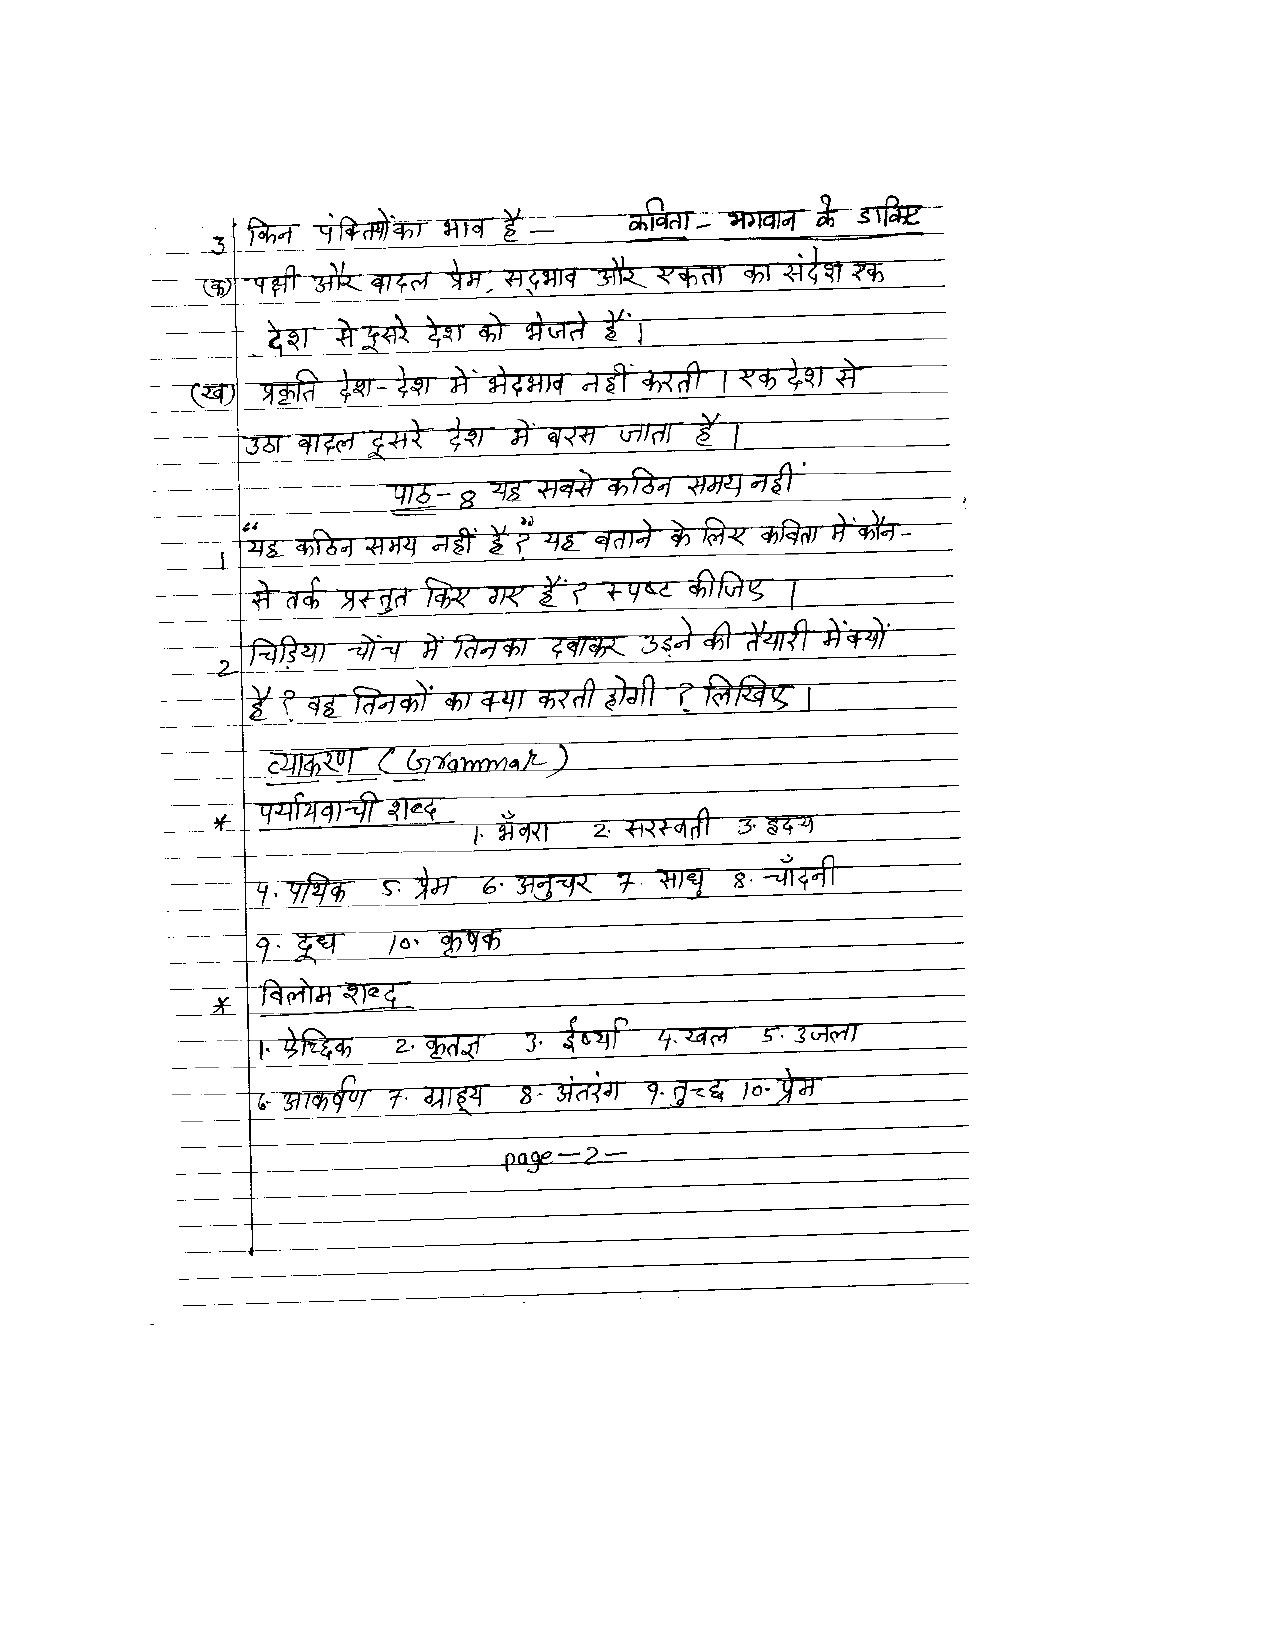 3 किन पंक्तियों का भाव है — कविता - भगवान के डाकिए
(क) पक्षी और बादल प्रेम, सद्भाव और एकता का संदेश एक
देश से दूसरे देश को भेजते हैं।
(ख) प्रकृति देश-देश में भेदभाव नहीं करती। एक देश से
उठा बादल दूसरे देश में बरस जाता है।
पाठ-8 यह सबसे कठिन समय नहीं
1 “यह कठिन समय नहीं है?” यह बताने के लिए कविता में कौन-
से तर्क प्रस्तुत किए गए हैं? स्पष्ट कीजिए।
2 चिड़िया चोंच में तिनका दबाकर उड़ने की तैयारी में क्यों
है? वह तिनकों का क्या करती होगी? लिखिए।
व्याकरण (Grammar)
* पर्यायवाची शब्द
1. भँवरा 2. सरस्वती 3. हृदय
4. पथिक 5. प्रेम 6. अनुचर 7. साधु 8. चाँदनी
9. दूध 10. कृषक
* विलोम शब्द
1. ऐच्छिक 2. कृतज्ञ 3. ईर्ष्या 4. खल 5. उजला
6. आकर्षण 7. ग्राह्य 8. अंतरंग 9. तुच्छ 10. प्रेम
page-2-